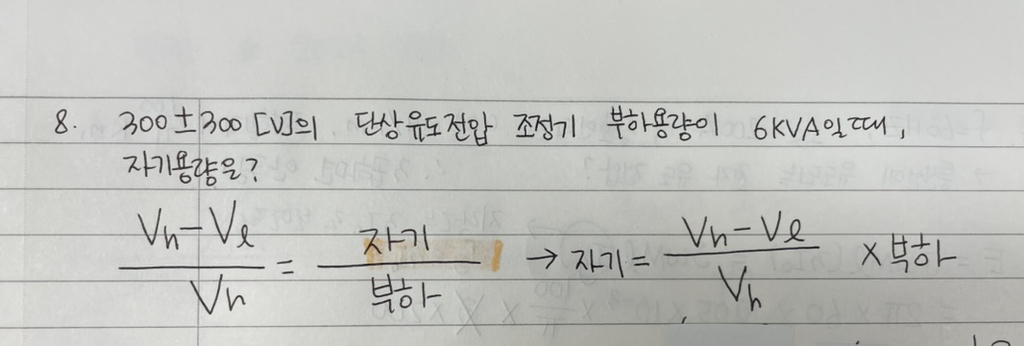 8. 300±300 [V]의 단상유도전압 조정기 부하용량이 6KVA일때,
자기용량은?
Vh-Vl / Vh = 자기 / 부하 → 자기 = Vh-Vl / Vh × 부하